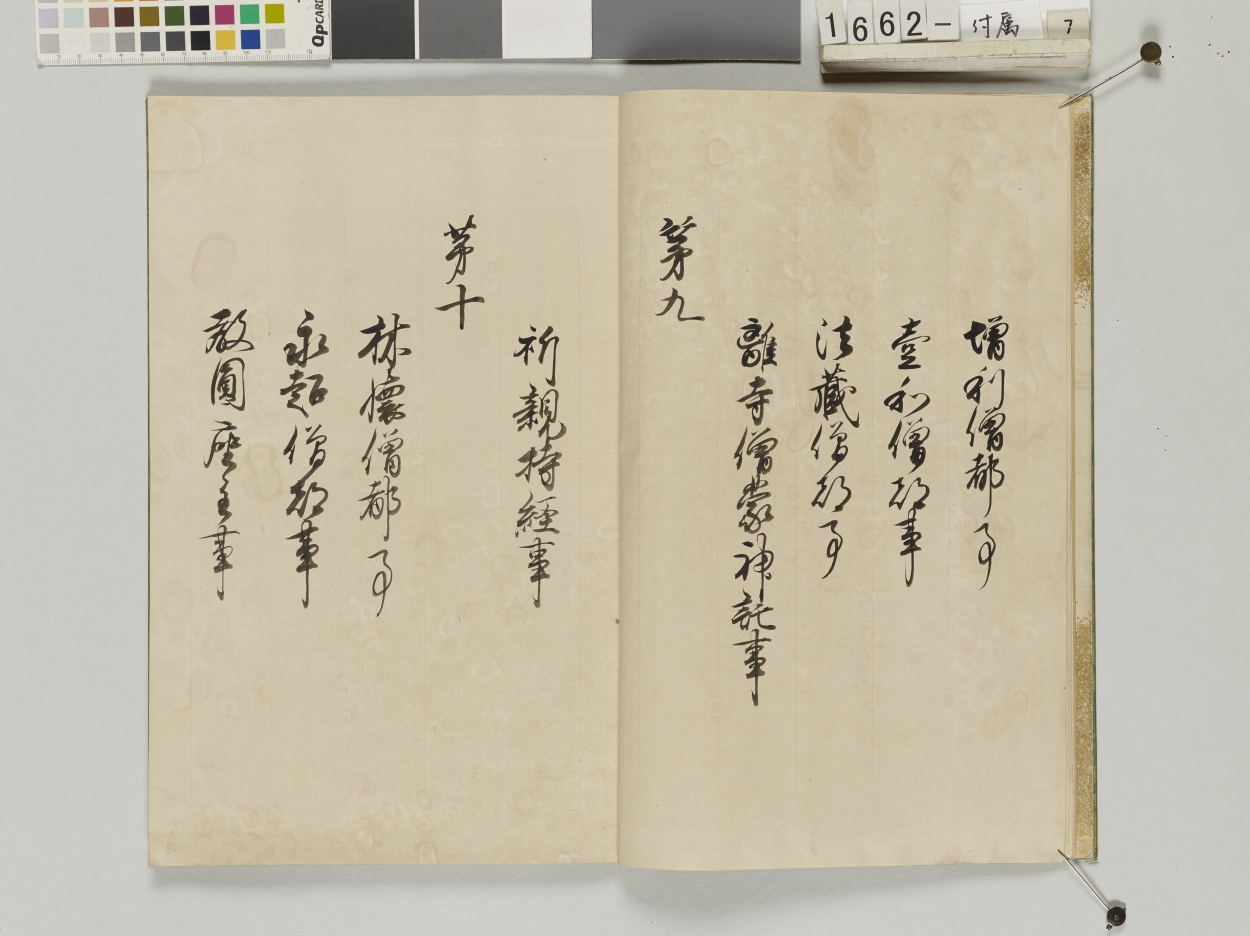 1662-付属 7
QPCARD
増利僧都事
壹和僧都事
法藏僧都事
離寺僧蒙神託事
第九
祈親持經事
第十
林懷僧都事
永超僧都事
教圓座主事